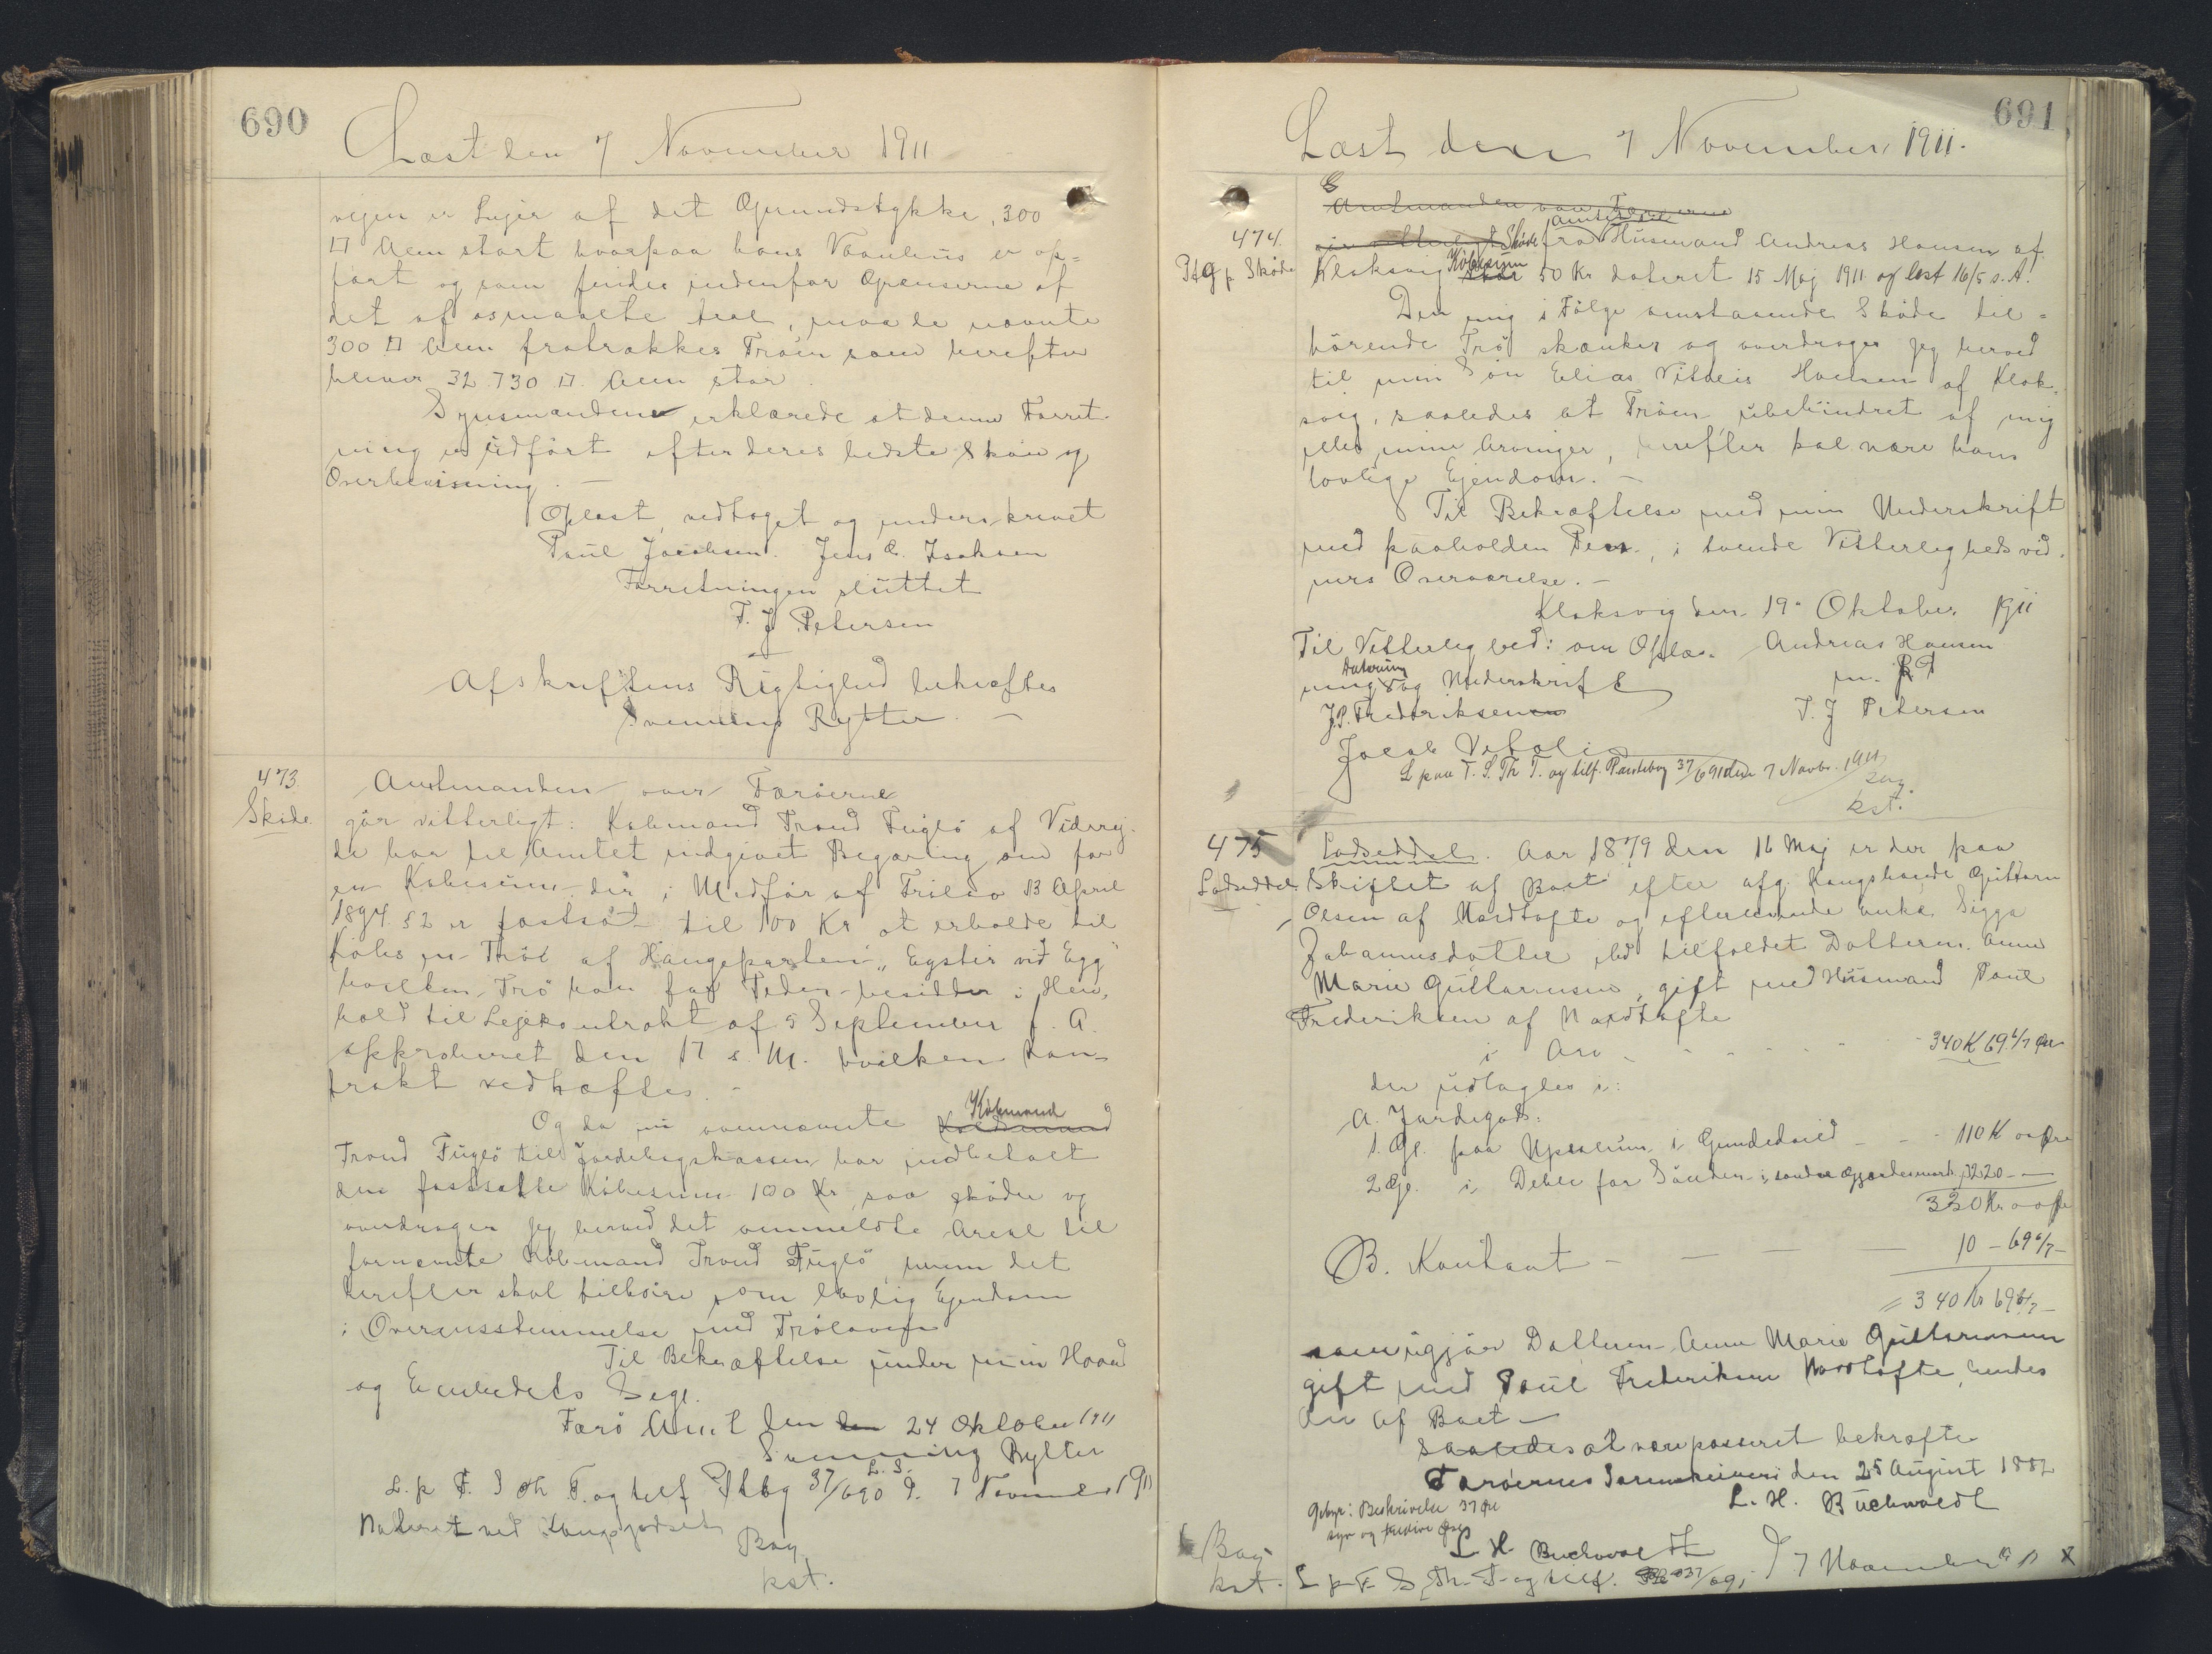 690
Læst den 7 November 1911
vejen er Lejer af det Grundstykke, 300
□ Alen stort hvorpaa hans Vaanhus er op=
ført og som findes indenfor Grænserne af
det af osmaalte Areal, maa de nævnte
300 □ Alen fratrækkes Trøen som herefter
bliver 32.730 □ Alen stor.
Synsmændene erklærede at denne Forret-
ning er udført efter deres bedste Skøn og
Overbevisning. —
Oplæst, vedtaget og underskrevet
Poul Jacobsen. Jens C. Isaksen
Forretningen sluttet
F. J Petersen
Afskriftens Rigtighed bekræftes
Svenning Rytter. —
473
Skøde
Amtmanden over Færøerne
gør vitterligt: Købmand Trond Fuglø af Viderej-
de har til Amtet indgivet Begæring om for
en Købesum der i Medfør af Trølov 13 April
1894 § 2 er fastsat til 100 Kr at erholde til
Købs en Trøe af Hangeparten "Eystir við Egg"
hvilken Trø han for Tiden besidder i Hen-
hold til Lejekontrakt af 5 September f. A.
approberet den 17 s. M. hvilken Kon-
trakt vedhæftes. -
Og da nu ovennævnte Købmand
Trond Fuglø til Jordebogskassen har indbetalt
den fastsatte Købesum 100 Kr, saa skøder og
overdrager jeg herved det ommeldte Areal til
fornævnte Købmand Trond Fuglø, hvem det
herefter skal tilhøre som lovlig Ejendom
i Overensstemmelse med Trøloven
Til Bekræftelse under min Haand
og Embedets Segl.
Færø Amt den den 24 Oktober 1911
Svenning Rytter
L. S.
L. p F. S Th T. og tilf Ptbg 37/690 d. 7 November 1911
Noteret ved Kongsjordset
Bay
kst.
691
Læst den 7 November 1911.
Amtmanden over Færøerne
474.
Ptg p Skøde
gør vitterligt Skøde fra Amtet til Husmand Andreas Hansen af
Klaksvig Købesum stor 50 Kr dateret 15 Maj 1911 og læst 16/5 s. A.
Den mig i Følge omstaaende Skøde til=
hørende Trø skænker og overdrager jeg herved
til min Søn Elias Vitalis Hansen af Klak-
svig, saaledes at Trøen ubehindret af mig
eller mine Arvinger, herefter skal være hans
lovlige Ejendom. —
Til Bekræftelse med min Underskrift
med paaholden Pen, i tvende Vitterlighedsvid-
ners Overværelse. —
Klaksvig den 19 Oktober 1911
Til Vitterlighed: om Oplæs- Andreas Hansen
ning Datering og Underskrift m. p P
J.P. Fredriksen T. J Petersen
Jacob Vitalis
L paa F. S. Th T. og tilf. Pantebog 37/691 den 7 Novbr. 1911
Bay
kst.
475
Lodseddel
Lodseddel. Aar 1879 den 16 Maj er der paa
Skiftet af Boet efter afg. Kongsbonde Guttorm
Olsen af Nordtofte og efterlevende Enke Sigga
Johannusdatter ibd tilfaldet Datteren Anne
Marie Guttormsen, gift med Husmand Poul
Frederiksen af Nordtofte
i Arv - - - - - - 340 K 69 6/7 Øre
der udlagdes i:
A. Jordegods:
1 Gl. paa Upsalum i Gundedvied - - - 110 K 00 Øre
2 Gl. i Deble for Sønden i søndre Gjerdesmark 220 — —
330 Kr 00 Øre
B. Kontant — — — — 10 - 69 6/7 -
= 340 Kr 69 6/7 -
som udgjør Datteren Anne Marie Guttormsen
gift med Poul Frederiksen Nordtofte, hendes
Arv af Boet —
Saaledes at være passeret bekræfte
Færøernes Sorenskriveri den 25 August 1882
L. H. Buchwaldt
Gebyr: Beskrivelse 37 Øre
syv og tredive Øre
L H Buchwaldt
Bay
kst.
L p F S Th T og tilf. Pb 37/691 d 7 November 11